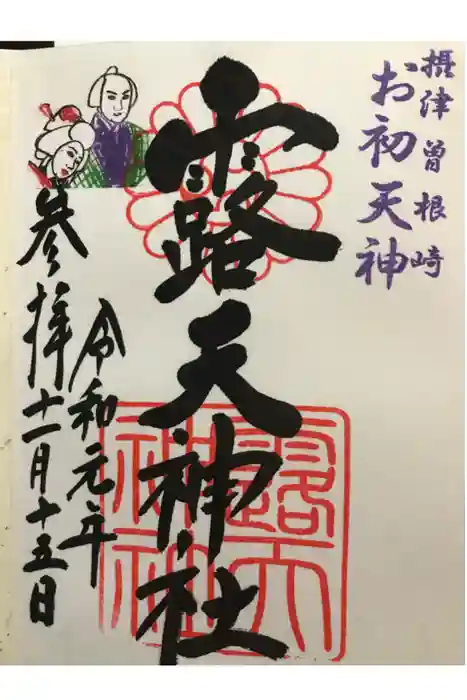 摂津 曽根崎
お初天神
露天神社
令和元年
参拝 十一月十五日
露天
神社